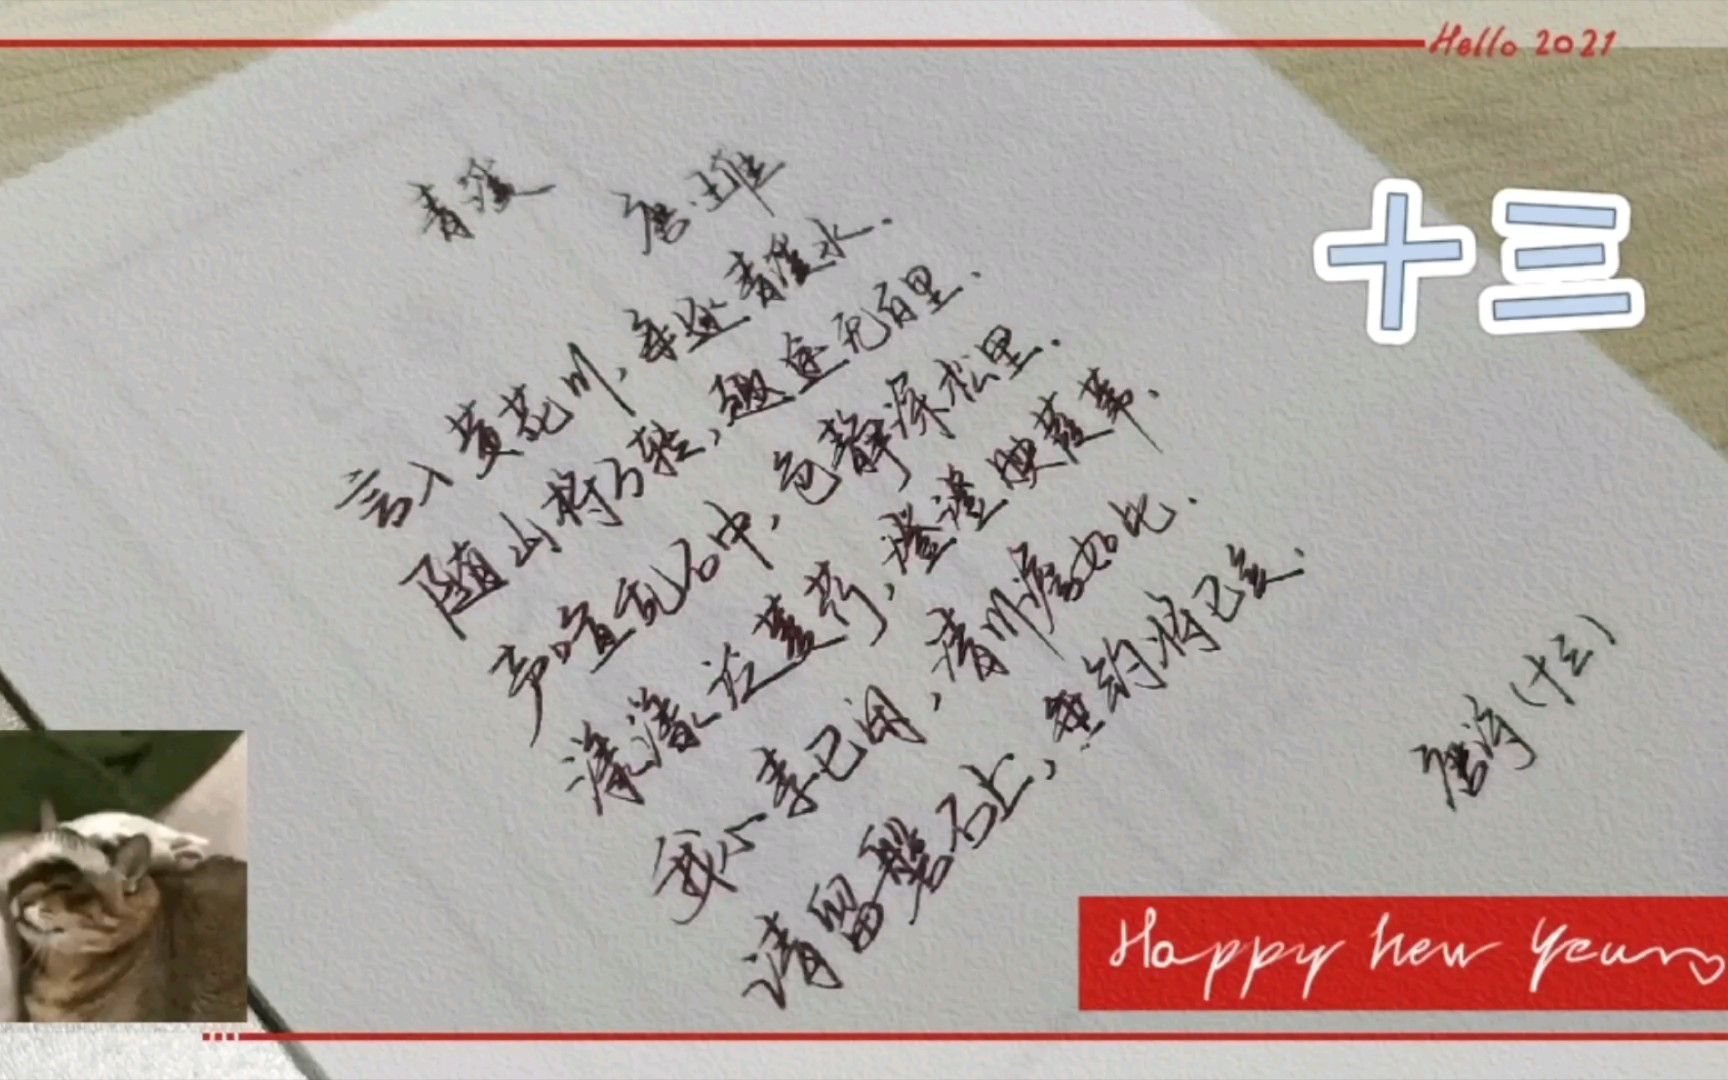 Hello 2021
十三
青溪 唐·王维
言入黄花川，每逐青溪水.
随山将万转，趣途无百里.
声喧乱石中，色静深松里.
漾漾泛菱荇，澄澄映葭苇.
我心素已闲，清川澹如此.
请留磐石上，垂钓将已矣.
(十三)
Happy New Year